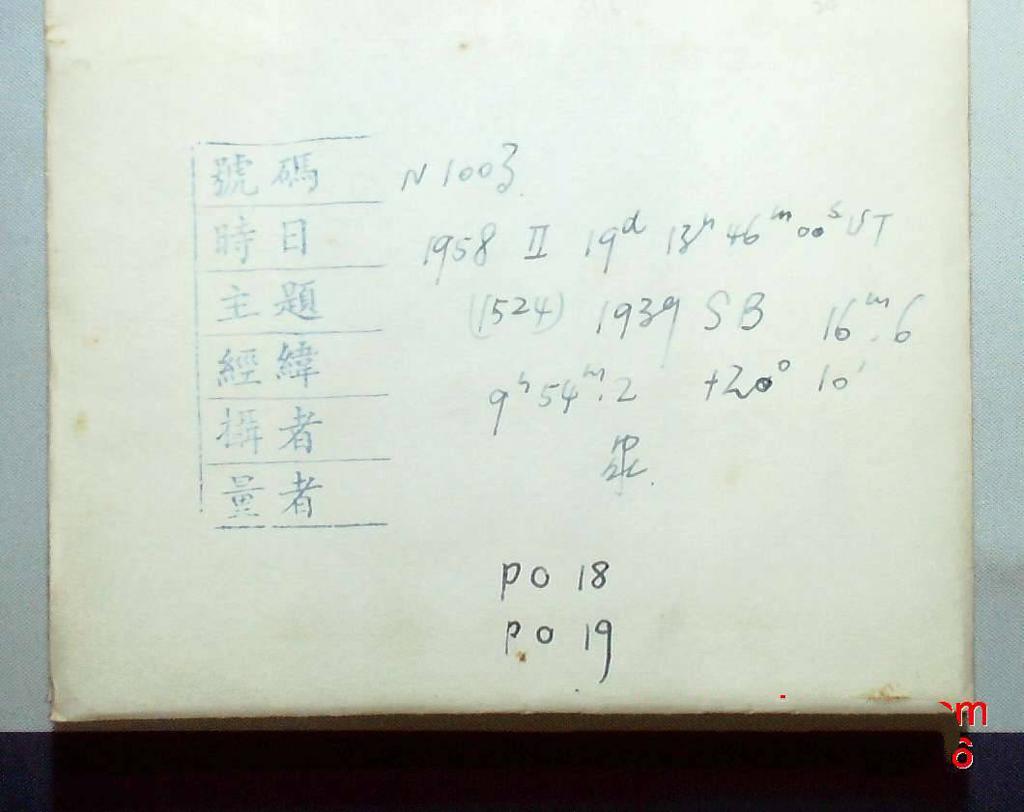 號碼 N 1003
時日 1958 II 19ᵈ 13ʰ 46ᵐ 00ˢ UT
主題 (1524) 1939 SB 16ᵐ.6
經緯 9ʰ 54ᵐ.2 +20° 10′
攝者
量者
PO 18
PO 19
m
6